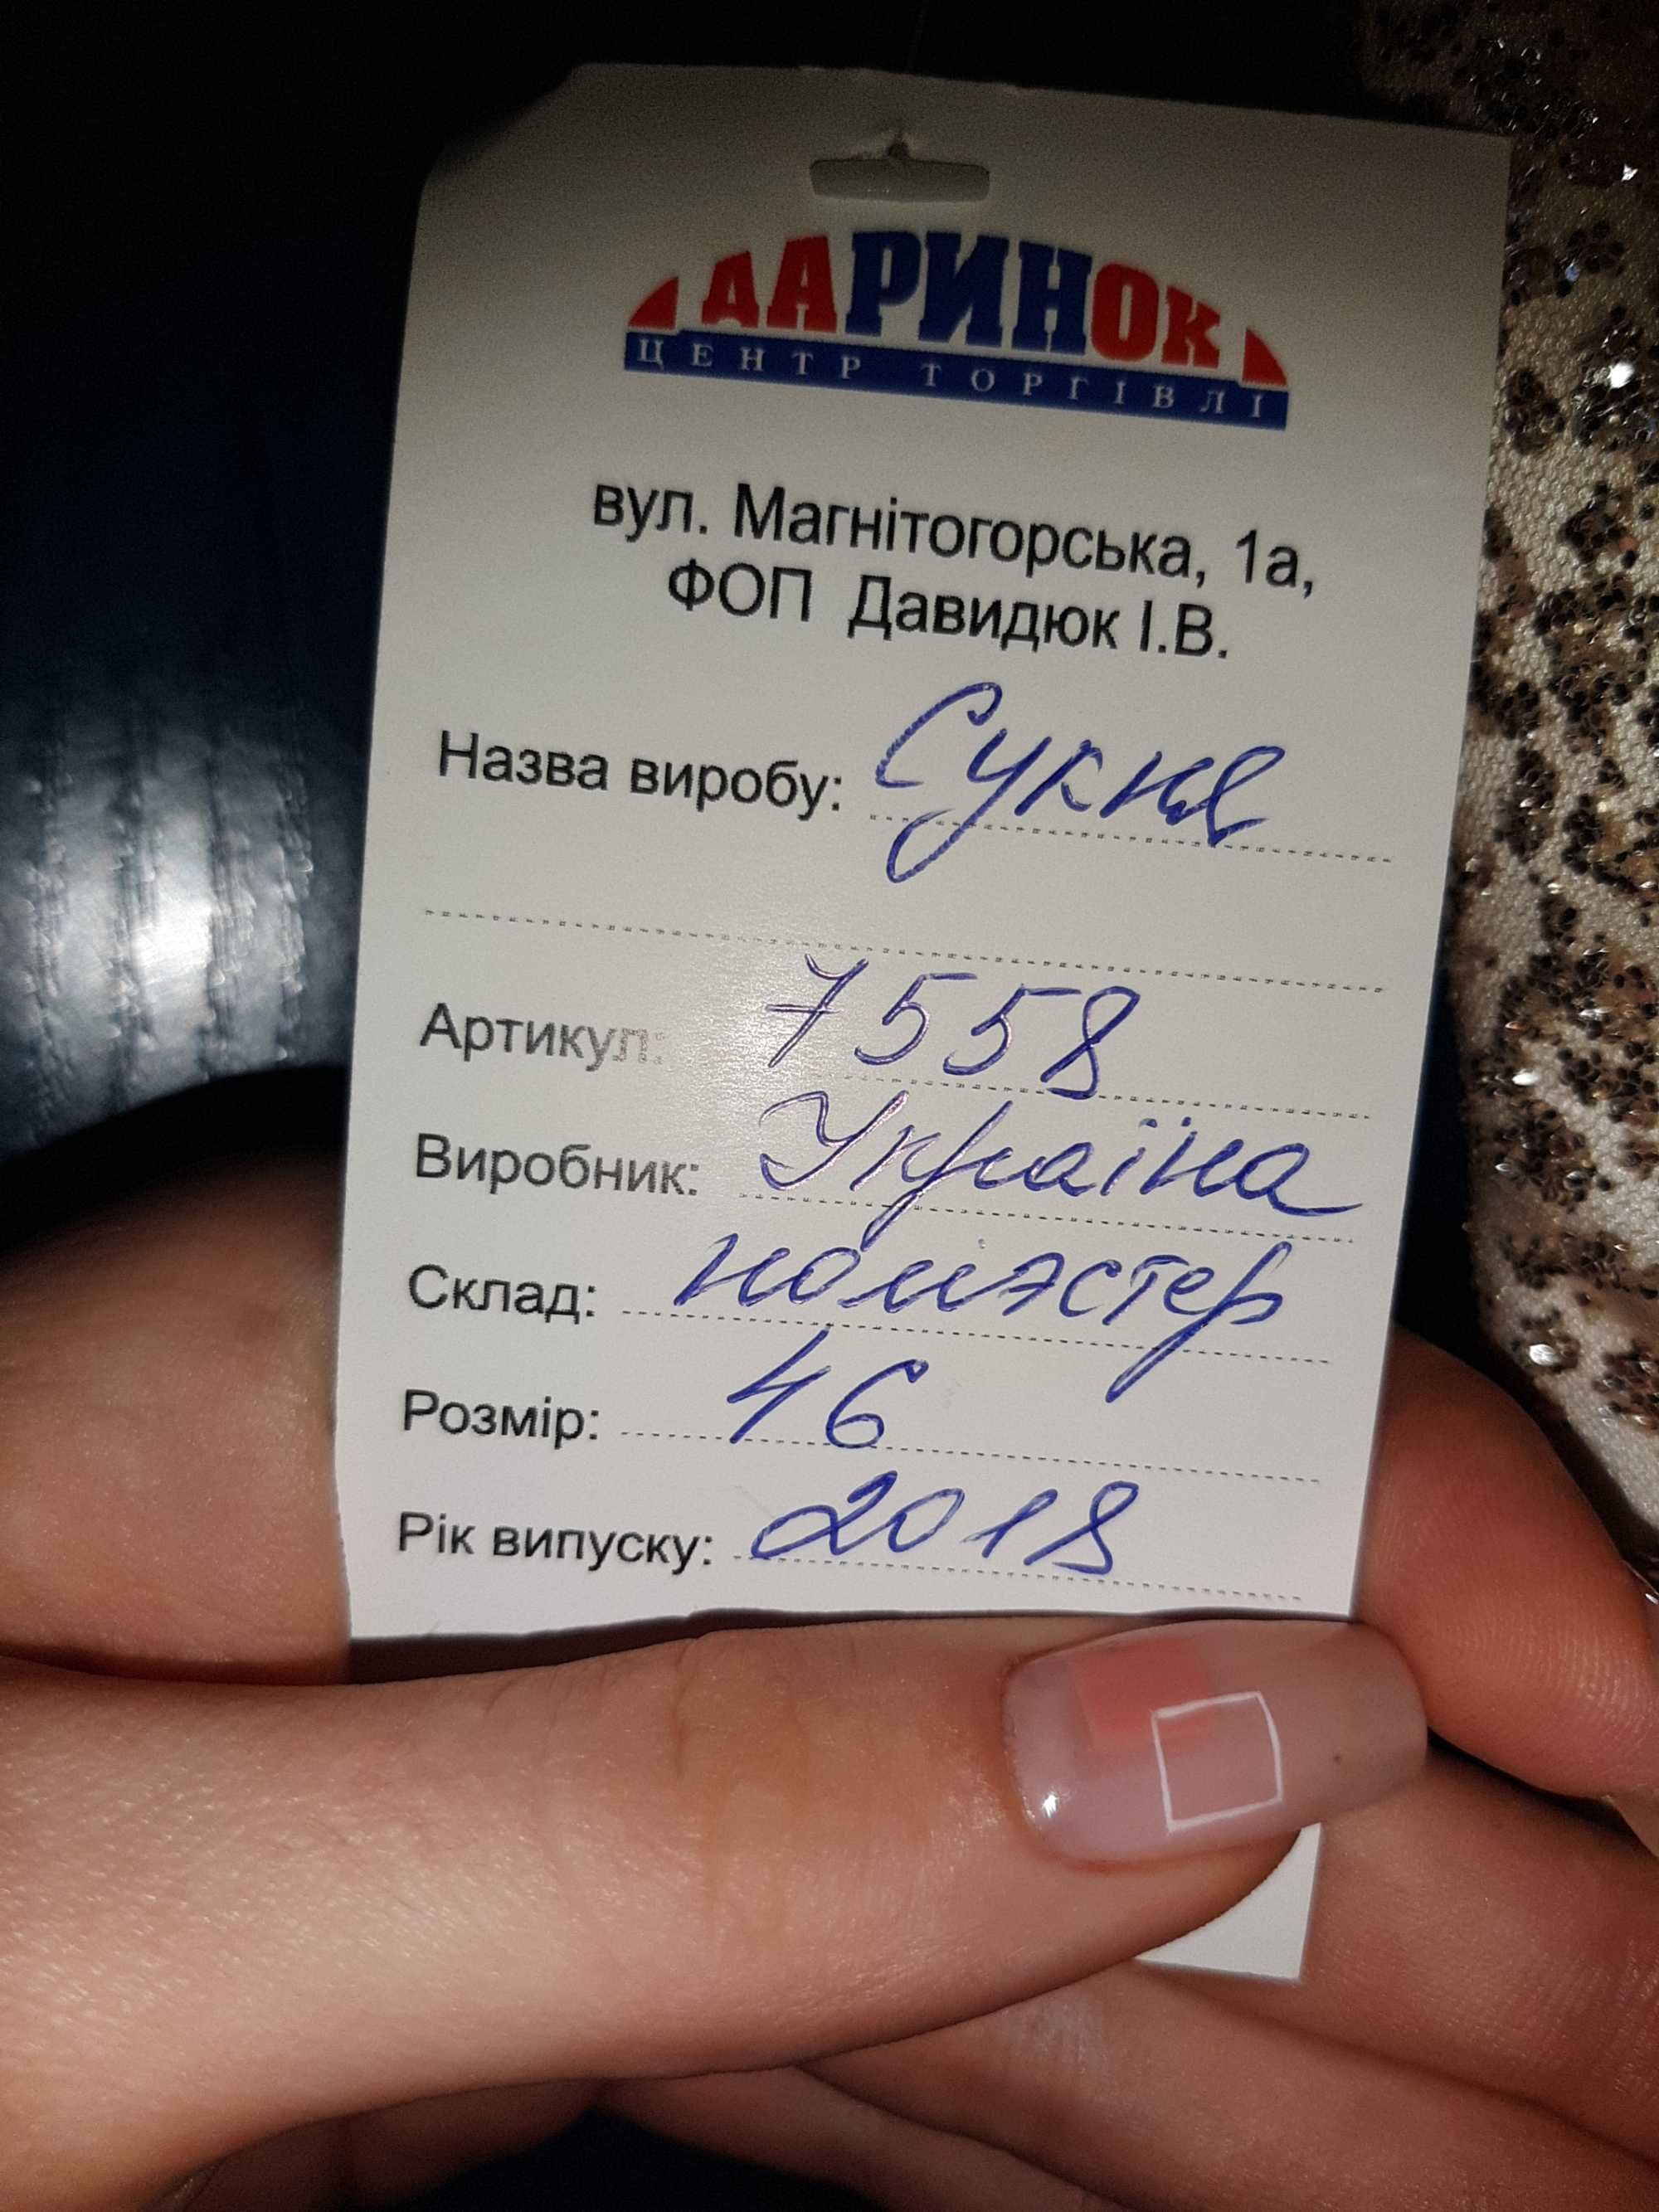 ДАРИНОК
ЦЕНТР ТОРГІВЛІ
вул. Магнітогорська, 1а,
ФОП Давидюк І.В.
Назва виробу: Сукня
Артикул: 7558
Виробник: Україна
Склад: поліэстер
Розмір: 46
Рік випуску: 2018